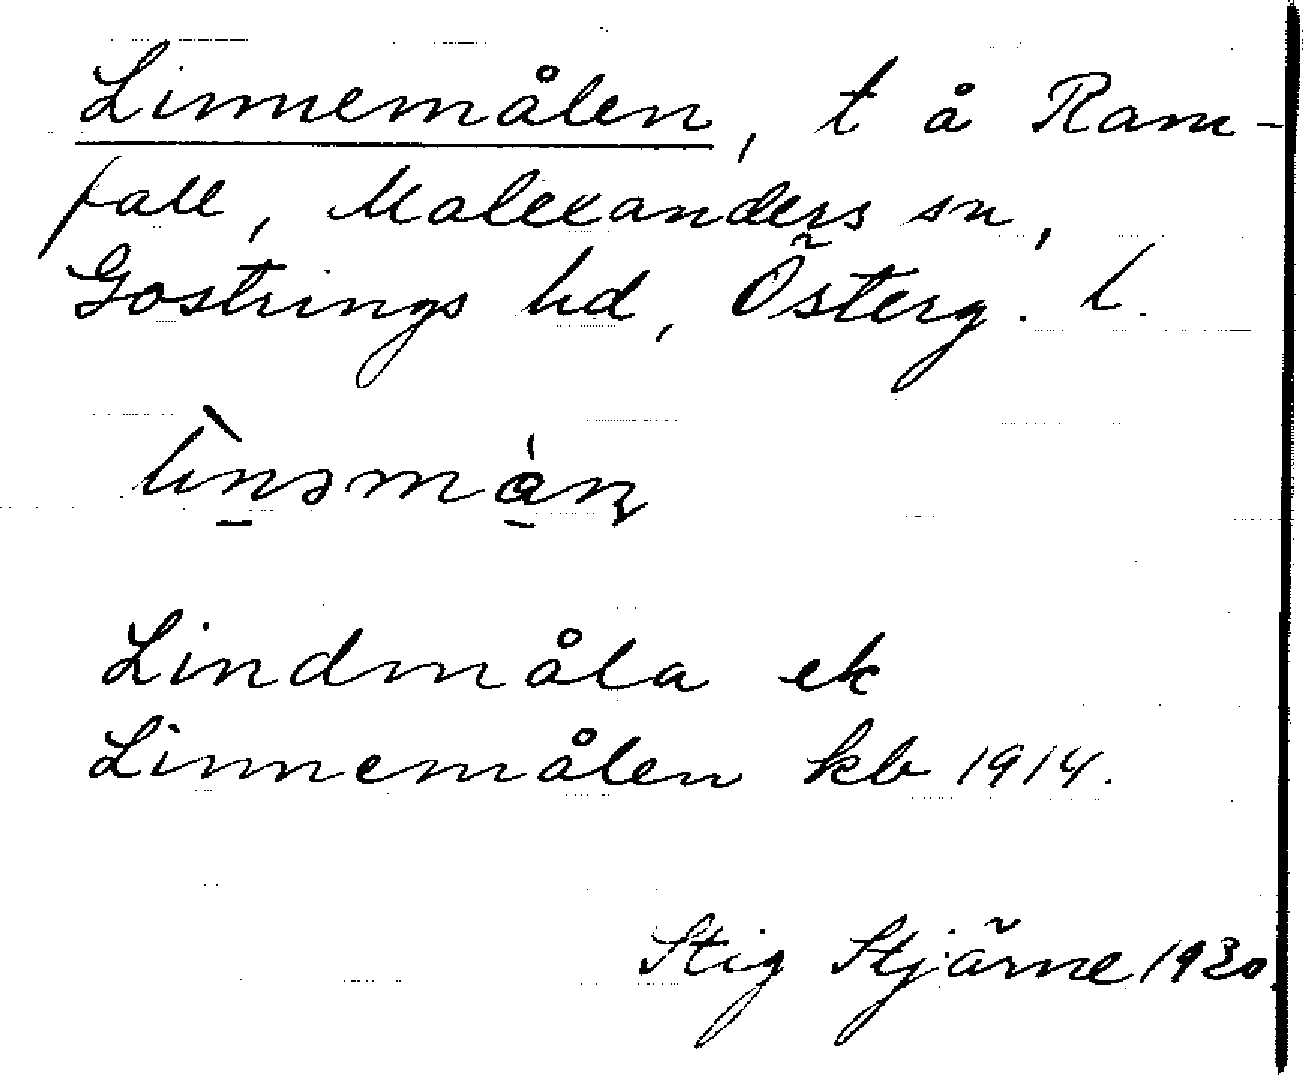 Linnemålen, t å Ram-
fall, Malexanders sn,
Göstrings hd, Österg. l.
lìnəmá̱ɳ
Lindmåla ek
Linnemålen kb 1914.
Stig Stjärne 1930.